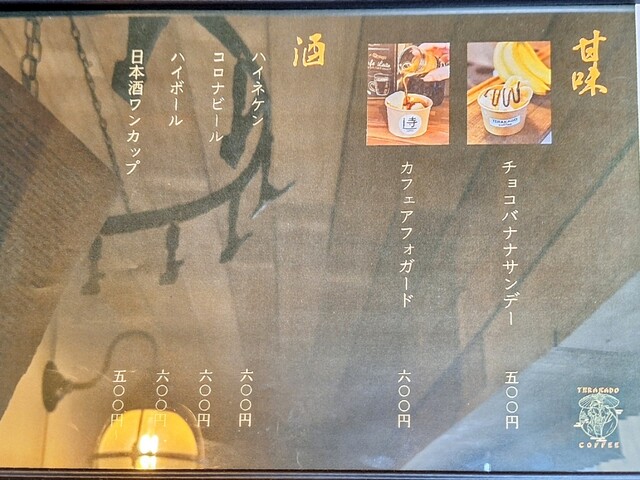 甘味
チョコバナナサンデー 五〇〇円
カフェアフォガード 六〇〇円
酒
ハイネケン 六〇〇円
コロナビール 六〇〇円
ハイボール 六〇〇円
日本酒ワンカップ 五〇〇円
TERAKADO
COFFEE